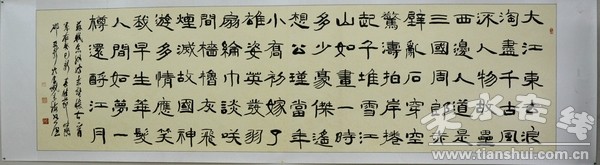 大江東去浪
淘盡千古風
流人物故壘
西邊人道是
三國周郎赤
壁亂石穿空
驚濤拍岸捲
起千堆雪江
山如畫一時
多少豪傑遙
想公瑾當年
小喬初嫁了
雄姿英發羽
扇綸巾談笑
間檣櫓灰飛
煙滅故國神
遊多情應笑
我早生華髮
人間如夢一
樽還酹江月
蘇軾念奴嬌赤壁懷古一首
天水在线
www.tianshui.com.cn